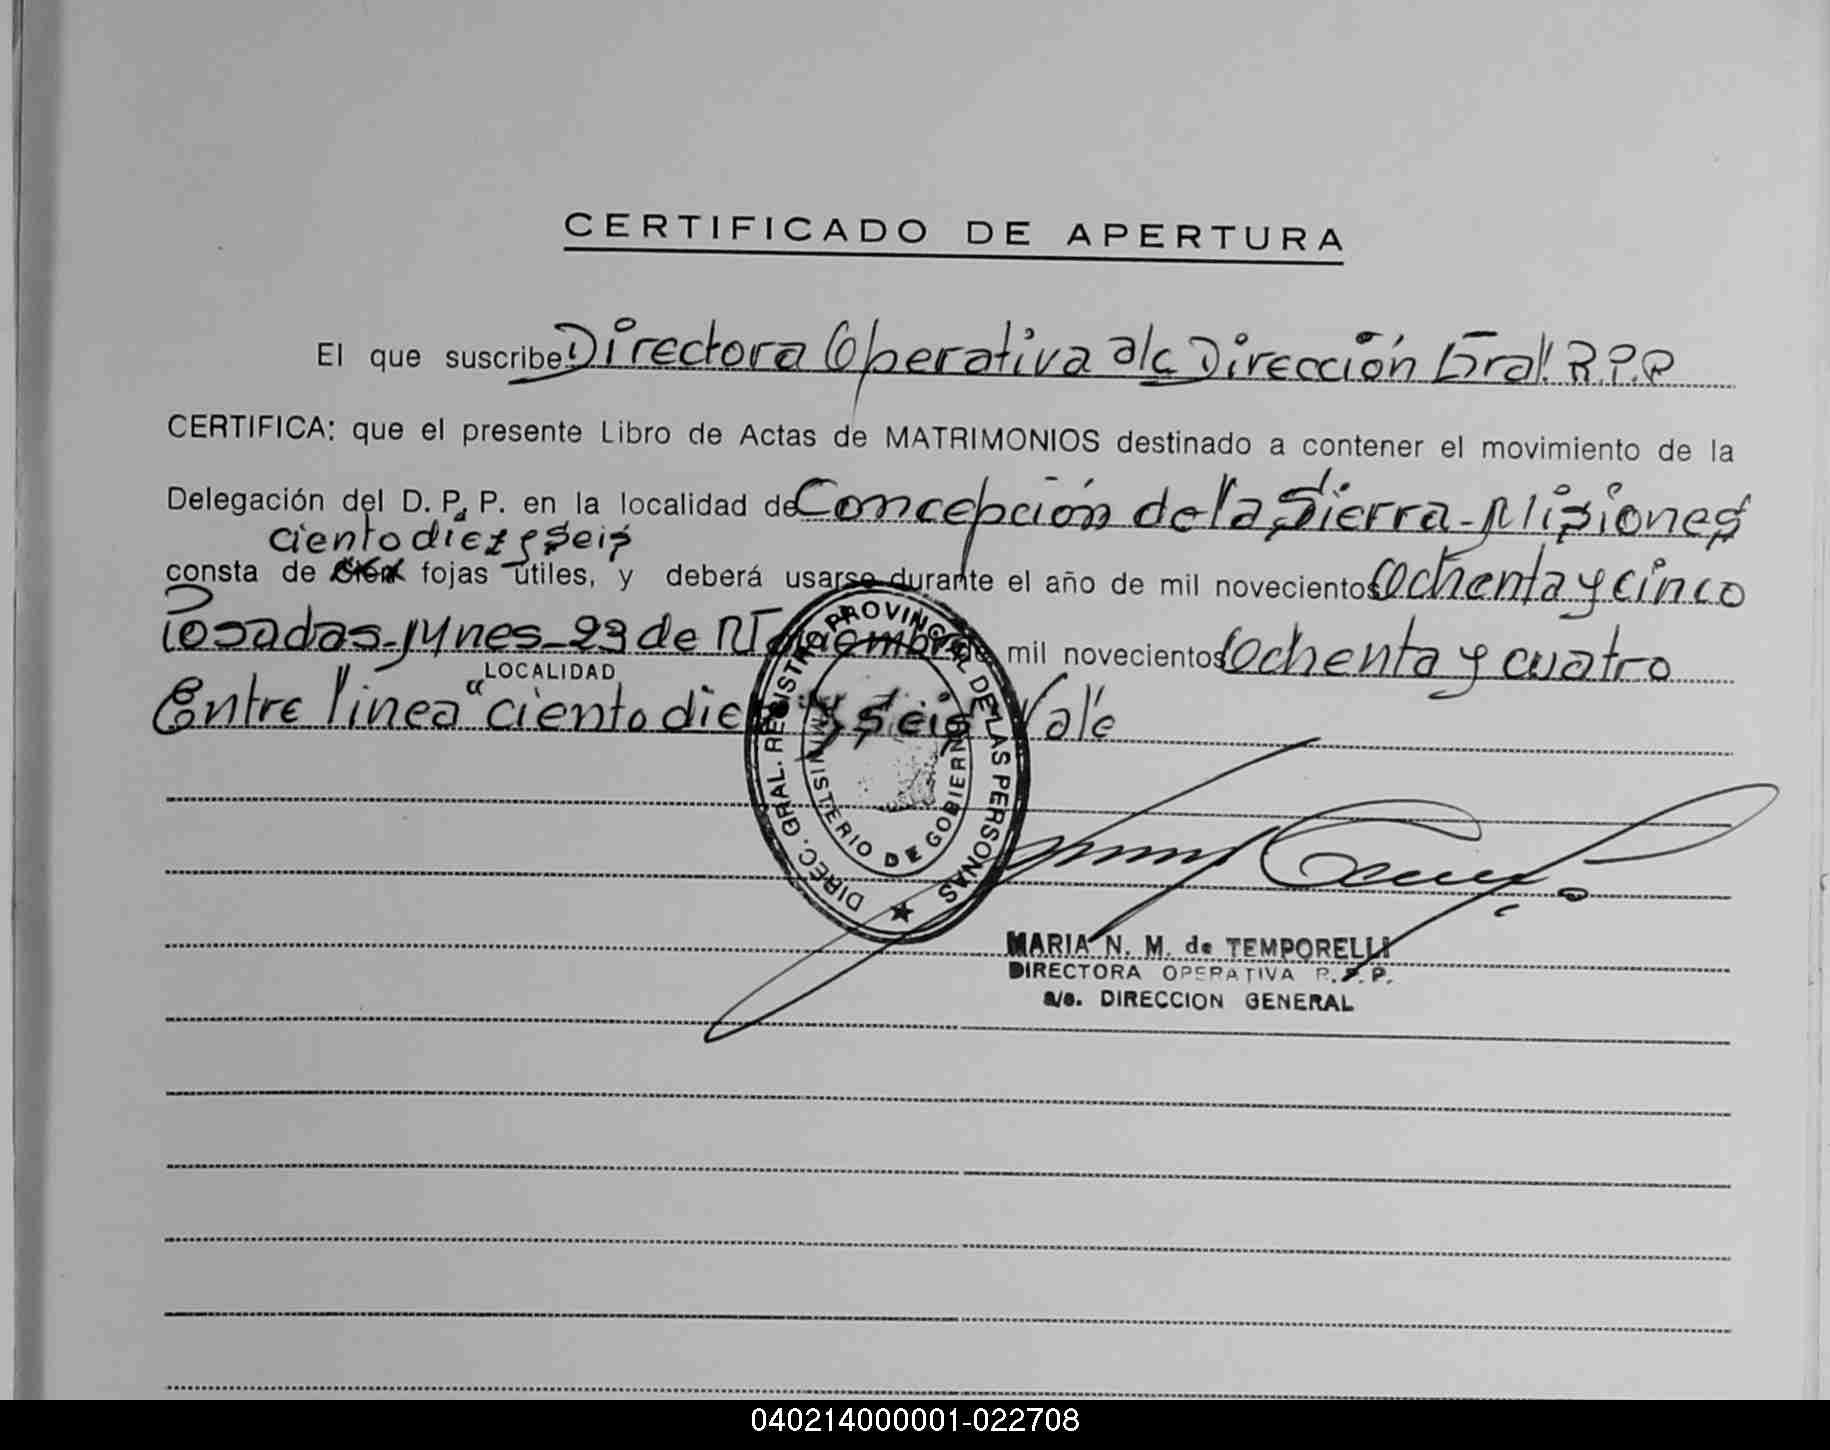 CERTIFICADO DE APERTURA
El que suscribe Directora Operativa a/c Dirección Gral. R.P.P
CERTIFICA: que el presente Libro de Actas de MATRIMONIOS destinado a contener el movimiento de la
Delegación del D. P. P. en la localidad de Concepción de la Sierra - Misiones
ciento diez y seis
consta de cien fojas útiles, y deberá usarse durante el año de mil novecientos Ochenta y cinco
Posadas - Mnes - 23 de Noviembre de mil novecientos Ochenta y cuatro
LOCALIDAD
Entre línea "ciento diez y seis" Vale
DIREC. GRAL. REGISTRO PROVINCIAL DE LAS PERSONAS
MINISTERIO DE GOBIERNO
MARIA N. M. de TEMPORELLI
DIRECTORA OPERATIVA R.P.P.
a/c. DIRECCION GENERAL
040214000001-022708